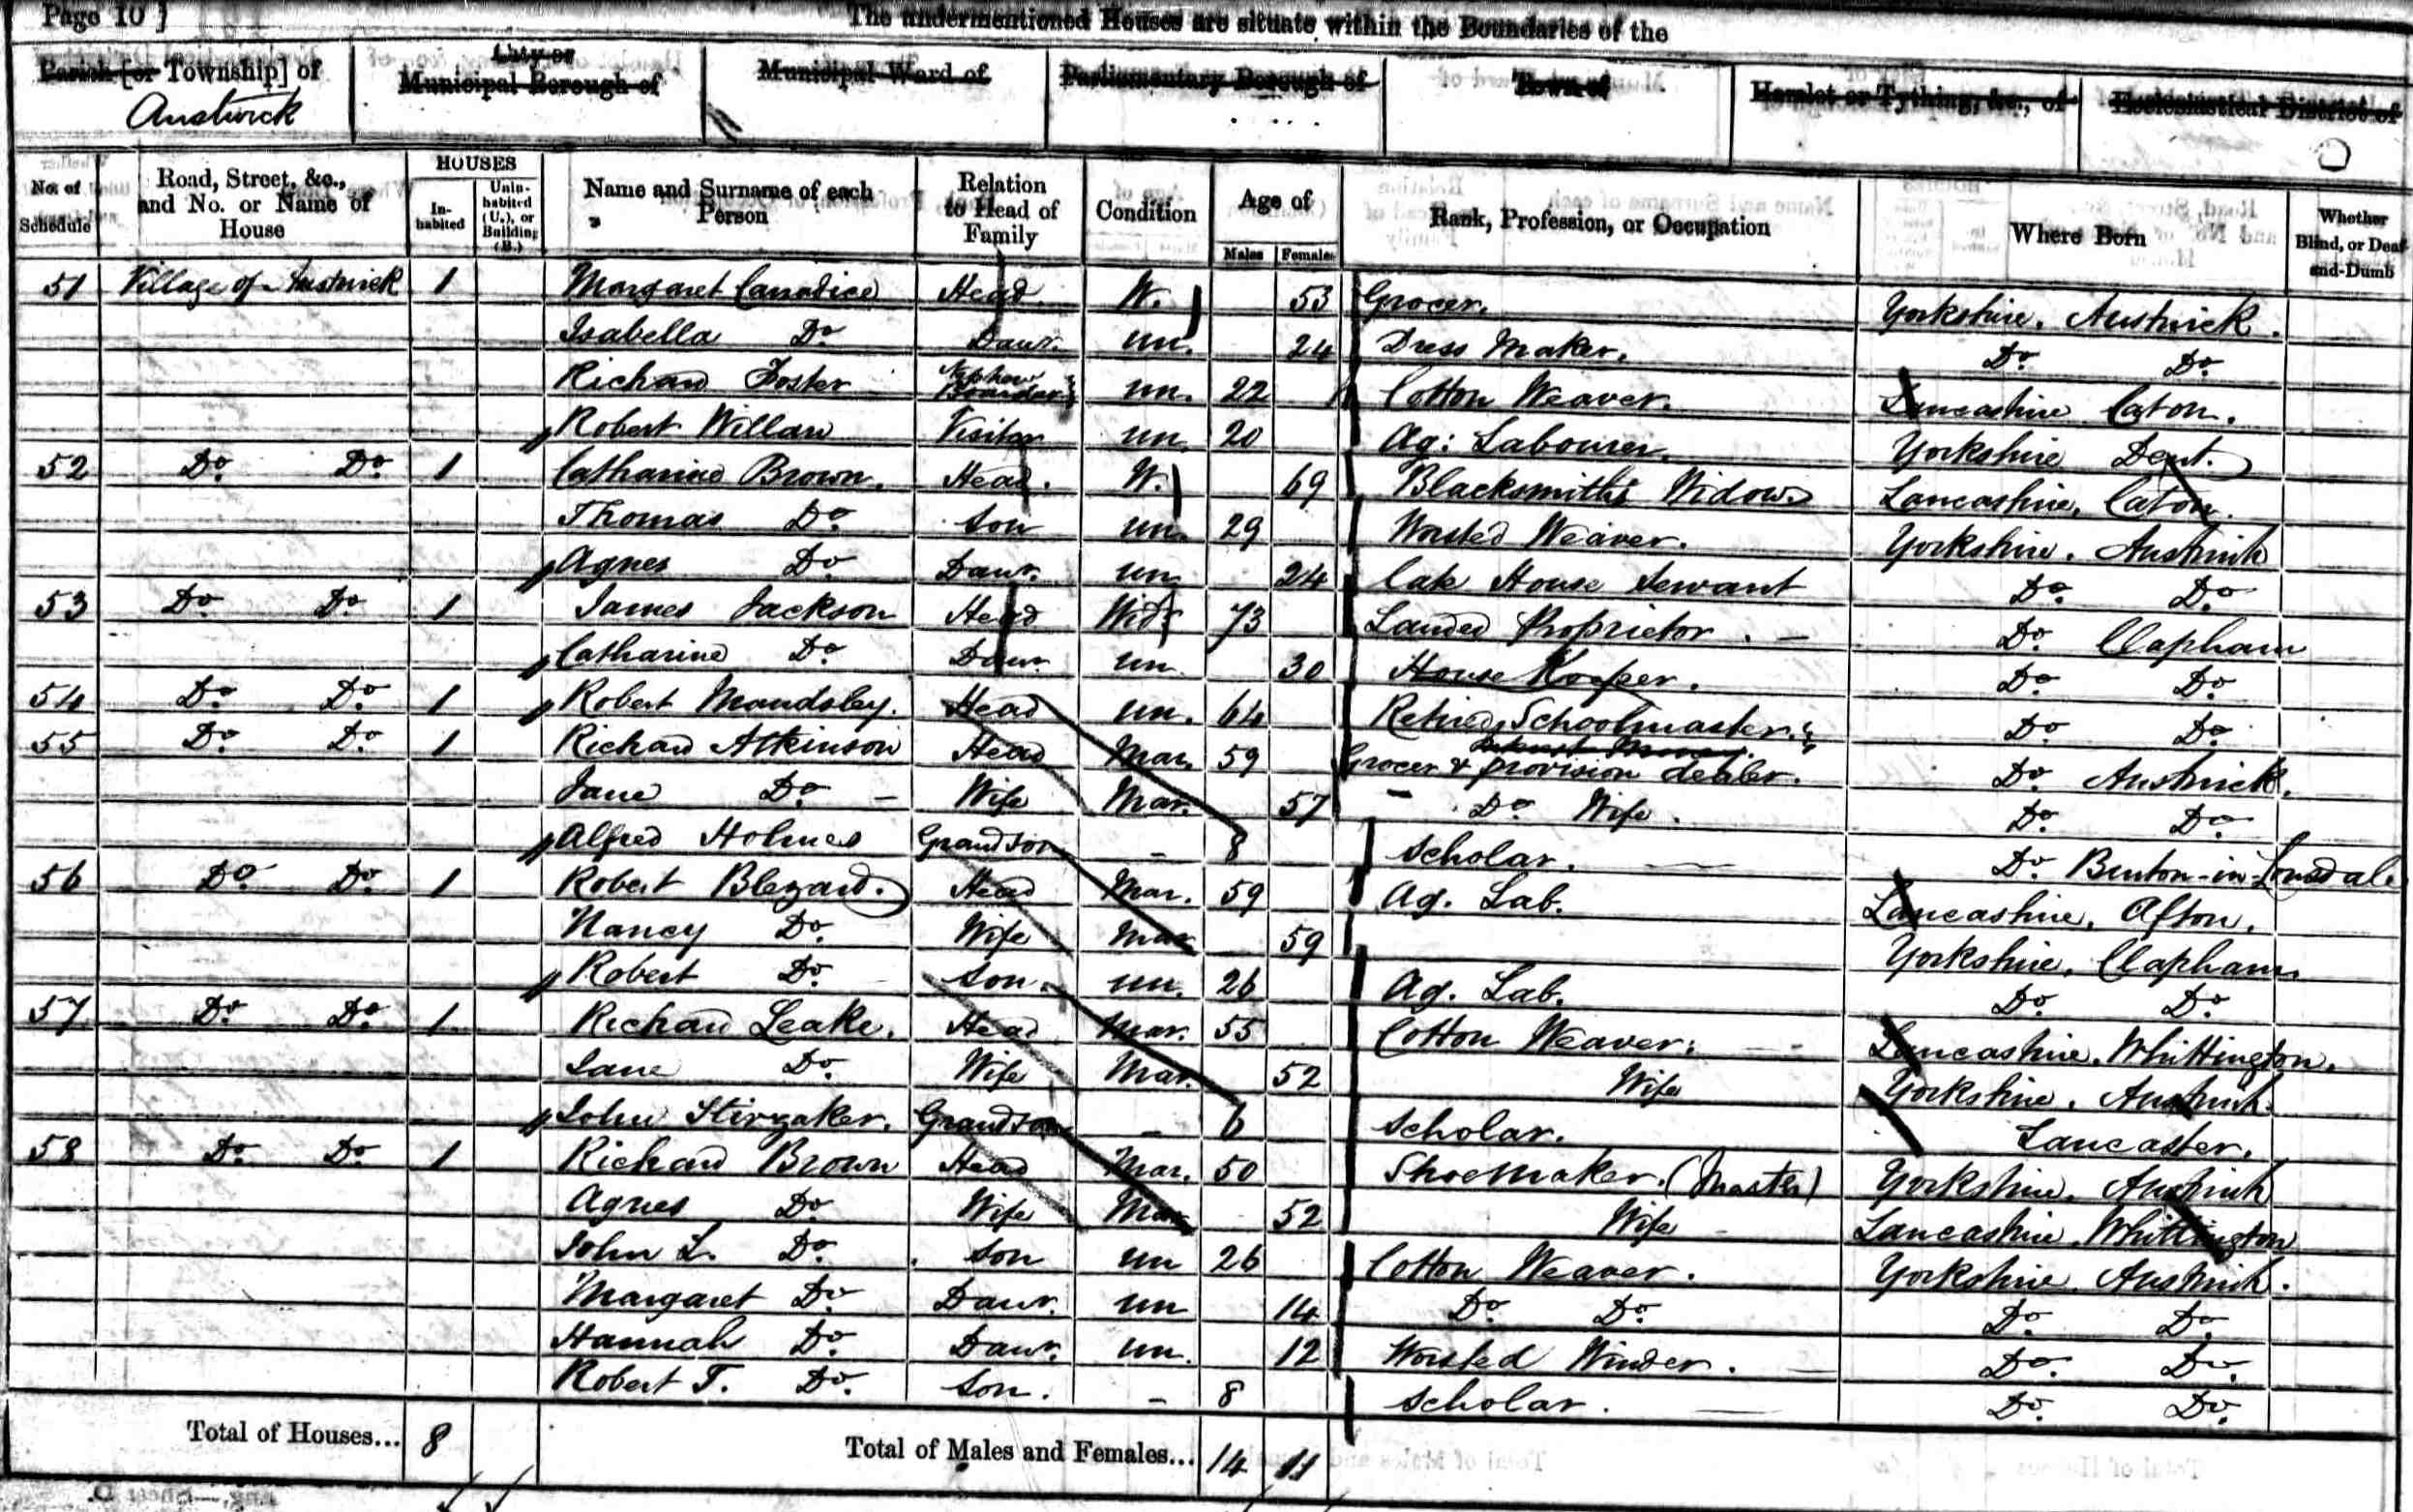 Page 10]
The undermentioned Houses are situate within the Boundaries of the
Parish [or Township] of
Austwick
City or Municipal Borough of
Municipal Ward of
Parliamentary Borough of
Town of
Hamlet or Tything, &c., of
Ecclesiastical District of
No. of Schedule
Road, Street, &c., and No. or Name of House
HOUSES
In-habited
Unin-habited (U.), or Building (B.)
Name and Surname of each Person
Relation to Head of Family
Condition
Age of
Males
Females
Rank, Profession, or Occupation
Where Born
Whether Blind, or Deaf-and-Dumb
51 Village of Austwick 1 Margaret Carradice Head W. 53 Grocer. Yorkshire. Austwick.
Isabella Do. Daur. Un. 24 Dress Maker. Do. Do.
Richard Foster Nephew Boarder Un. 22 Cotton Weaver. Lancashire Caton.
Robert Willan Visitor Un. 20 Ag: Labourer. Yorkshire Dent.
52 Do. Do. 1 Catharine Brown. Head. W. 69 Blacksmith's Widow Lancashire, Caton.
Thomas Do. Son Un. 29 Worsted Weaver. Yorkshire. Austwick
Agnes Do. Daur. Un. 24 late House Servant Do. Do.
53 Do. Do. 1 James Jackson Head Widr 73 Landed Proprietor. Do. Clapham
Catharine Do. Daur. Un. 30 House Keeper. Do. Do.
54 Do. Do. 1 Robert Maudsley. Head Un. 64 Retired Schoolmaster. Do. Do.
55 Do. Do. 1 Richard Atkinson Head Mar. 59 Grocer & provision dealer. Do. Austwick.
Jane Do. Wife Mar. 57 Do. Wife. Do. Do.
Alfred Holmes Grandson - 8 Scholar. Do. Burton-in-Lonsdale
56 Do. Do. 1 Robert Blezard. Head Mar. 59 Ag. Lab. Lancashire. Afton.
Nancy Do. Wife Mar. 59 Yorkshire, Clapham
Robert Do. Son. Un. 26 Ag. Lab. Do. Do.
57 Do. Do. 1 Richard Leake. Head Mar. 55 Cotton Weaver. Lancashire. Whittington.
Jane Do. Wife Mar. 52 Wife Yorkshire. Austwick.
John Stirzaker. Grandson - 6 Scholar. Lancaster.
58 Do. Do. 1 Richard Brown Head Mar. 50 Shoemaker. (Master) Yorkshire. Austwick
Agnes Do. Wife Mar 52 Wife Lancashire. Whittington
John L. Do. Son Un 26 Cotton Weaver. Yorkshire. Austwick.
Margaret Do. Daur. Un 14 Do. Do. Do. Do.
Hannah Do. Daur. Un. 12 Worsted Winder. Do. Do.
Robert T. Do. Son. - 8 Scholar. Do. Do.
Total of Houses... 8
Total of Males and Females... 14 11